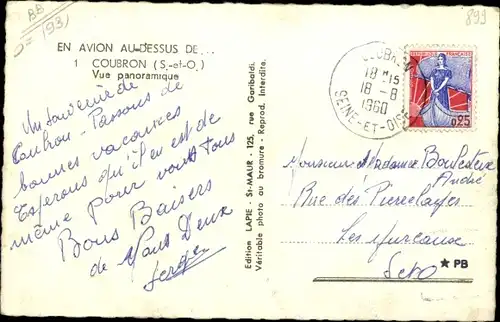 BB
(193)
899
EN AVION AU-DESSUS DE...
1 COUBRON (S.-et-O.)
Vue panoramique
Un souvenir de
Coubron - Passons de
bonnes vacances
Espérons qu'il en est de
même pour vous tous
Bons Baisers
de Nous Deux
Serge
Edition LAPIE - St-MAUR - 125, rue Garibaldi.
Véritable photo au bromure - Reprod. Interdite.
COUBRON
18 H 15
18 - 8
1960
SEINE-ET-OISE
REPUBLIQUE FRANÇAISE
0,25
Monsieur Madame
André
Rue des
Les Mureaux
S et O
★ PB